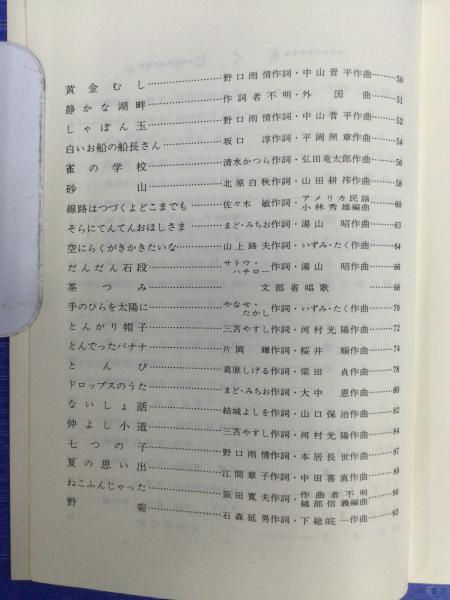 黄金むし…………野口雨情作詞・中山晋平作曲……50
静かな湖畔…………作詞者不明・外国曲……51
しゃぼん玉…………野口雨情作詞・中山晋平作曲……52
白いお船の船長さん…………坂口淳作詞・平岡照章作曲……54
雀の学校…………清水かつら作詞・弘田竜太郎作曲……56
砂山…………北原白秋作詞・山田耕筰作曲……58
線路はつづくよどこまでも…………佐々木敏作詞・アメリカ民謡 小林秀雄編曲……60
そらにてんてんおほしさま…………まど・みちお作詞・湯山昭作曲……63
空にらくがきかきたいな…………山上路夫作詞・いずみ・たく作曲……64
だんだん石段…………サトウ・ハチロー作詞・湯山昭作曲……66
茶つみ…………文部省唱歌……68
手のひらを太陽に…………やなせ・たかし作詞・いずみ・たく作曲……70
とんがり帽子…………三苫やすし作詞・河村光陽作曲……72
とんでったバナナ…………片岡輝作詞・桜井順作曲……74
とんび…………葛原しげる作詞・梁田貞作曲……78
ドロップスのうた…………まど・みちお作詞・大中恩作曲……80
ないしょ話…………結城よしを作詞・山口保治作曲……82
仲よし小道…………三苫やすし作詞・河村光陽作曲……84
七つの子…………野口雨情作詞・本居長世作曲……87
夏の思い出…………江間章子作詞・中田喜直作曲……88
ねこふんじゃった…………阪田寛夫作詞・作曲者不明 越部信義編曲……90
野菊…………石森延男作詞・下総皖一作曲……93